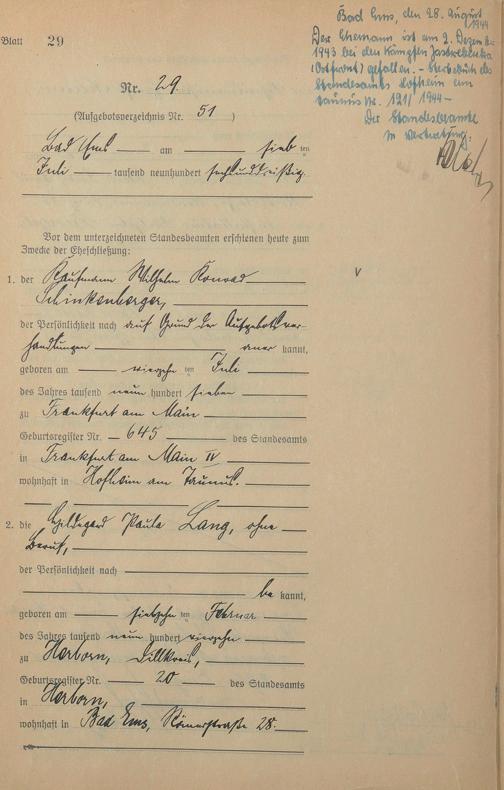 Blatt 29
Bad Ems, den 28. August
1944
Der Ehemann ist am 2. Dezember
1943 bei den Kämpfen
(Ostfront) gefallen. – Sterbebuch des
Standesamts Hofheim am
Taunus Nr. 121/1944 –
Der Standesbeamte
In Vertretung:
Nr. 29.
(Aufgebotsverzeichnis Nr. 51 )
Bad Ems am sieb ten
Juli tausend neunhundert sechsunddreißig.
Vor dem unterzeichneten Standesbeamten erschienen heute zum
Zwecke der Eheschließung:
1. der Kaufmann Wilhelm Konrad
Schinkenberger,
der Persönlichkeit nach auf Grund der Aufgebotsver-
handlungen aner kannt,
geboren am vierzehn ten Juli
des Jahres tausend neun hundert sieben
zu Frankfurt am Main
Geburtsregister Nr. 645 des Standesamts
in Frankfurt am Main IV
wohnhaft in Hofheim am Taunus.
2. die Hildegard Paula Lang, ohne
Beruf,
der Persönlichkeit nach
be kannt,
geboren am siebzehn ten Februar
des Jahres tausend neun hundert vierzehn
zu Herborn, Dillkreis,
Geburtsregister Nr. 20 des Standesamts
in Herborn,
wohnhaft in Bad Ems, Römerstraße 28.